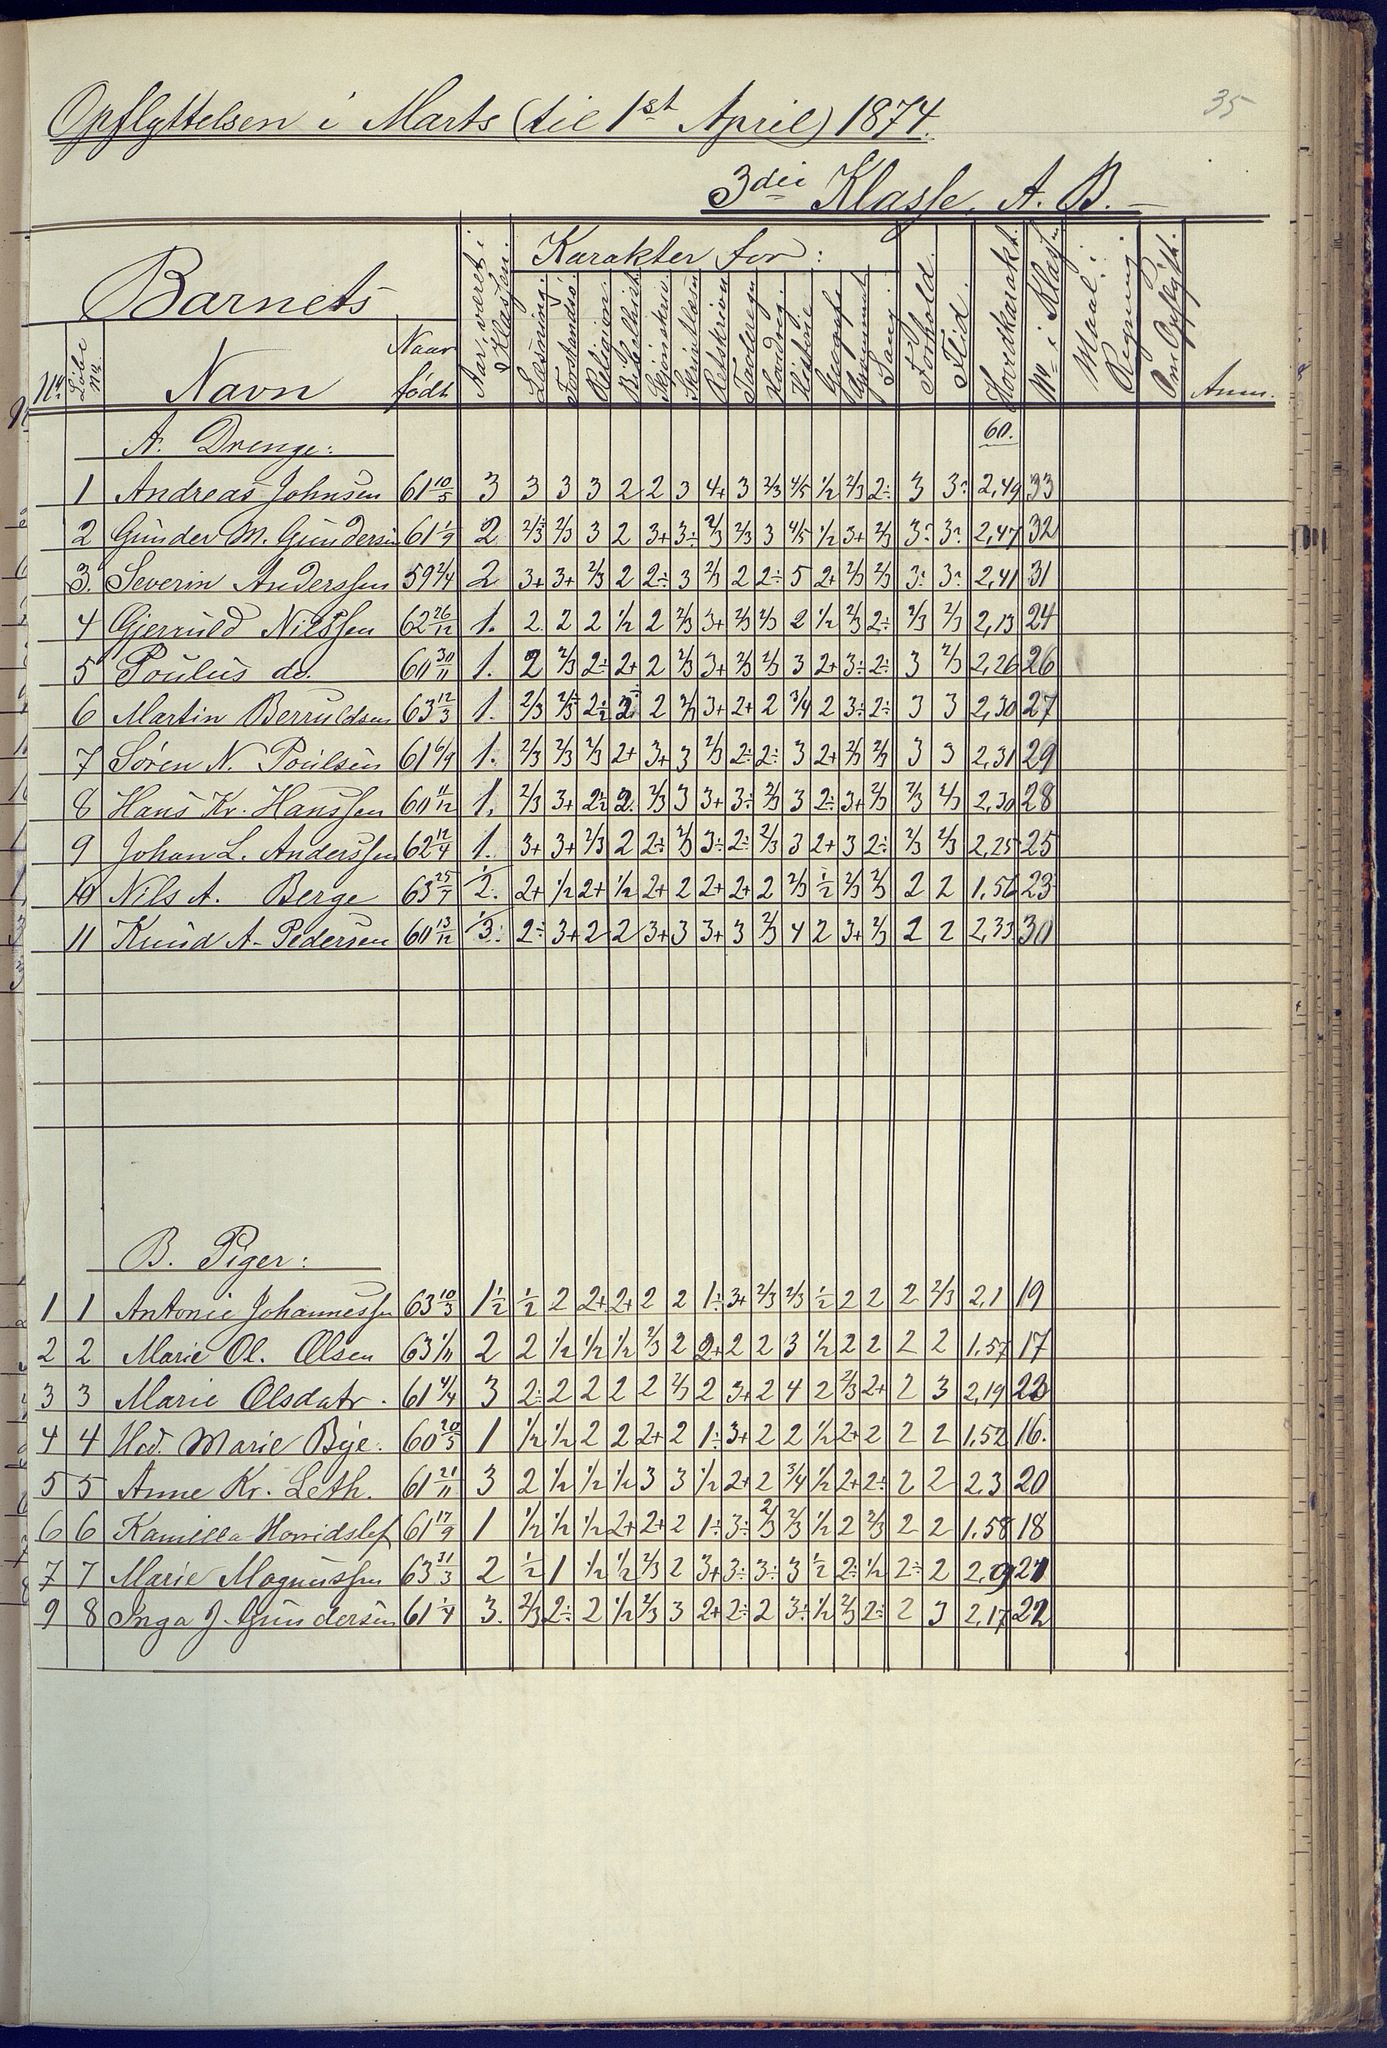 35
Opflyttelsen i Marts (til 1st April) 1874.
3die Klasse. A. B.
Barnets
Karakter for:
Nr. Løbe Nr. Navn Naar født Aar været i Klassen. Læsning. Religion. Sang. Forhold. Flid. Hovedkarakt. Nr i Klassen Maal i Regning. Om Opflytt. Anm.
A. Drenge:
60.
1 Andreas Johnsen 61 10/5 3 3 3 3 2 2 3 4+ 3 2/3 4/5 1/2 2/3 2÷ 3 3÷ 2,49 33
2 Gunder M. Gundersen 61 1/9 2 2/3 2/3 3 2 3+ 3÷ 2/3 2/3 3 4/5 1/2 3+ 2/3 3÷ 3÷ 2,47 32
3. Severin Anderssen 59 2/4 2 3+ 3+ 2/3 2 2÷ 3 2/3 2 2÷ 5 2+ 2/3 2/3 3÷ 3÷ 2,41 31
4 Gjeruld Nilssen 62 26/12 1. 2 2 2 1/2 2 2/3 3+ 2/3 2/3 2 1/2 2/3 2÷ 2/3 2/3 2,13 24
5 Poulus do. 60 30/11 1. 2 2/3 2÷ 2+ 2 2/3 3+ 2/3 2/3 3 2+ 3÷ 2÷ 3 2/3 2,26 26
6 Martin Berruldsen 63 12/3 1. 2/3 2/3 2÷ 2÷ 2 2/3 3+ 2+ 2 3/4 2 3÷ 2÷ 3 3 2,30 27
7 Søren N. Poulsen 61 6/9 1. 2/3 2/3 2/3 2+ 3+ 3 2/3 2÷ 2÷ 3 2+ 2/3 2/3 3 3 2,31 29
8 Hans Kr. Hanssen 60 11/12 1. 2/3 3+ 2÷ 2 2/3 3 3+ 3÷ 2/3 3 2÷ 3+ 2/3 2/3 2/3 2,30 28
9 Johan L. Anderssen 62 12/4 1. 3+ 3+ 2/3 2 2÷ 2/3 3÷ 2÷ 2/3 3 2+ 3 2÷ 2/3 2/3 2,25 25
10 Nils A. Berge 63 25/7 1/2. 2+ 1/2 2+ 1/2 2+ 2 2+ 2+ 2 2/3 1/2 2/3 2/3 2 2 1.56 23
11 Knud A. Pedersen 60 13/12 1/3. 2÷ 3+ 2 2 3+ 3 3+ 3 2/3 4 2 3+ 2/3 2 2 2,33 30
B. Piger:
1 1 Antonie Johannessen 63 10/3 1 1/2 1/2 2 2+ 2+ 2 2 1÷ 3+ 2/3 2/3 1/2 2 2 2 2/3 2,1 19
2 2 Marie Ol. Olsen 63 1/11 2 2 1/2 1/2 1/2 2/3 2 2+ 2 2 3 1/2 2 2 2 2 1.57 17
3 3 Marie Olsdatr. 61 4/4 3 2÷ 2 2 2 2 2/3 2 3+ 2 4 2 2/3 2+ 2 3 2,19 23
4 4 Hed. Marie Bye. 60 20/5 1 1/2 1/2 2 2 2+ 2 1÷ 3+ 2 2 1/2 2+ 2 2 2 1.52 16.
5 5 Anne Kr. Leth. 61 21/11 3 2 1/2 1/2 1/2 3 3 1/2 2+ 2 3/4 1/2 2+ 2÷ 2 2 2,3 20
6 6 Kamilla 61 17/9 1 1/2 1/2 1/2 2+ 2+ 2 1÷ 3÷ 2/3 2/3 1/2 2 2/3 2 2 1.58 18
7 7 Marie Magnussen 63 31/3 2 1/2 1 1/2 1/2 2/3 2 3+ 3÷ 3÷ 3 1/2 2÷ 1/2 2÷ 2 2,9 21
9 8 Inga J. Gundersen 61 1/4 3. 2/3 2÷ 2 1/2 2/3 3 2+ 2÷ 2 3÷ 1/2 2/3 2÷ 2 3 2,17 22